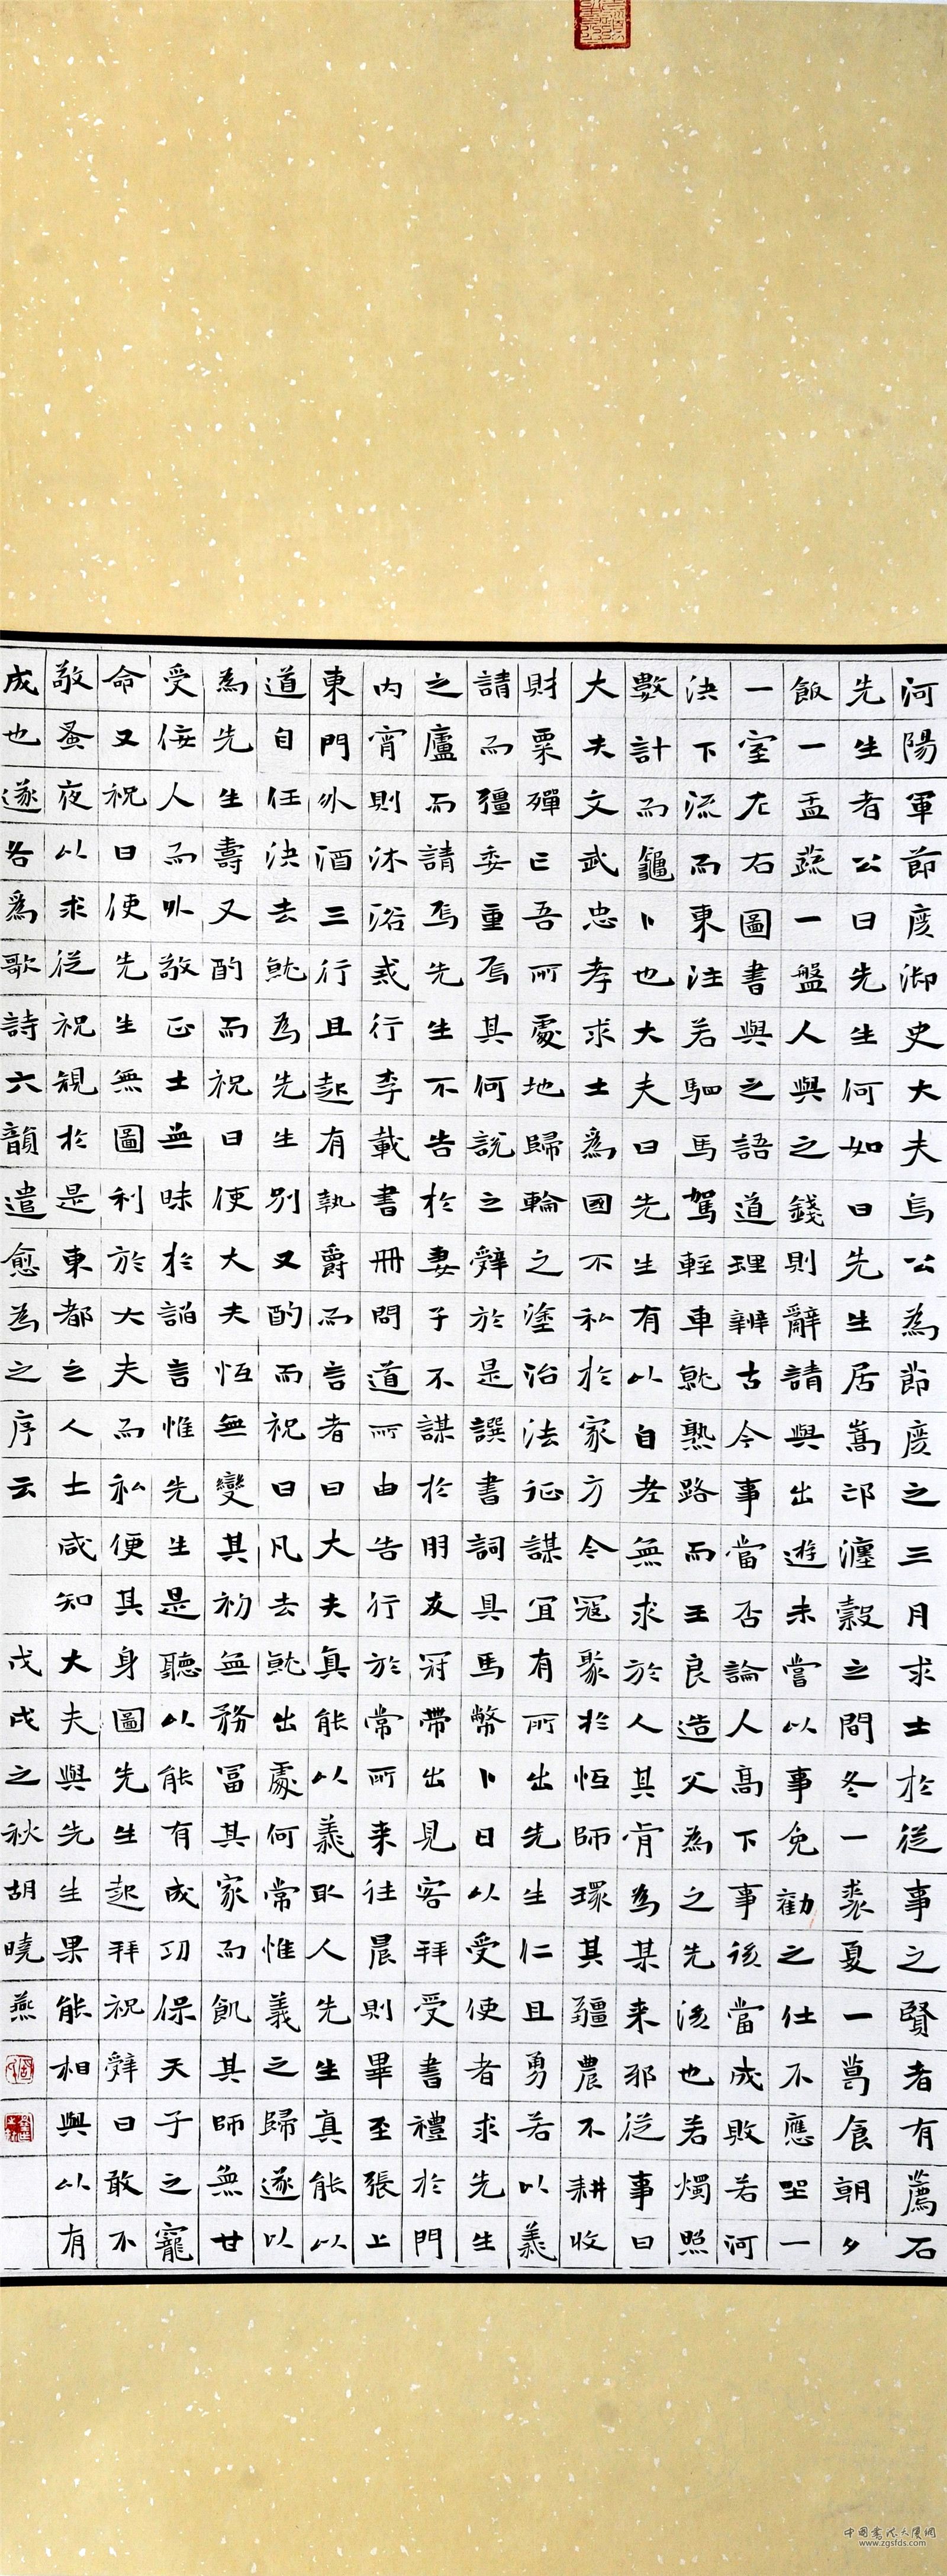 河陽軍節度御史大夫烏公為節度之三月求士於從事之賢者有薦石
先生者公曰先生何如曰先生居嵩邙瀍穀之間冬一裘夏一葛食朝夕
飯一盂蔬一盤人與之錢則辭請與出遊未嘗以事免勸之仕不應坐一
一室左右圖書與之語道理辨古今事當否論人高下事後當成敗若河
決下流而東注若駟馬駕輕車就熟路而王良造父為之先後也若燭照
數計而龜卜也大夫曰先生有以自老無求於人其肯為某来邪從事曰
大夫文武忠孝求士為國不私於家方今寇聚於恆師環其疆農不耕收
財粟殫亡吾所處地歸輸之塗治法征謀宜有所出先生仁且勇若以義
請而彊委重焉其何說之辭於是譔書詞具馬幣卜日以受使者求先生
之廬而請焉先生不告於妻子不謀於朋友冠帶出見客拜受書禮於門
内宵則沐浴戒行李載書冊問道所由告行於常所来往晨則畢至張上
東門外酒三行且起有執爵而言者曰大夫真能以義取人先生真能以
道自任決去就為先生別又酌而祝曰凡去就出處何常惟義之歸遂以
為先生壽又酌而祝曰使大夫恆無變其初無務富其家而飢其師無甘
受佞人而外敬正士無昧於諂言惟先生是聽以能有成功保天子之寵
命又祝曰使先生無圖利於大夫而私便其身圖先生起拜祝辭曰敢不
敬蚤夜以求從祝規於是東都之人士咸知大夫與先生果能相與以有
成也遂各爲歌詩六韻遣愈為之序云 戊戌之秋胡曉燕
中國書法大厦網
www.zgsfds.com